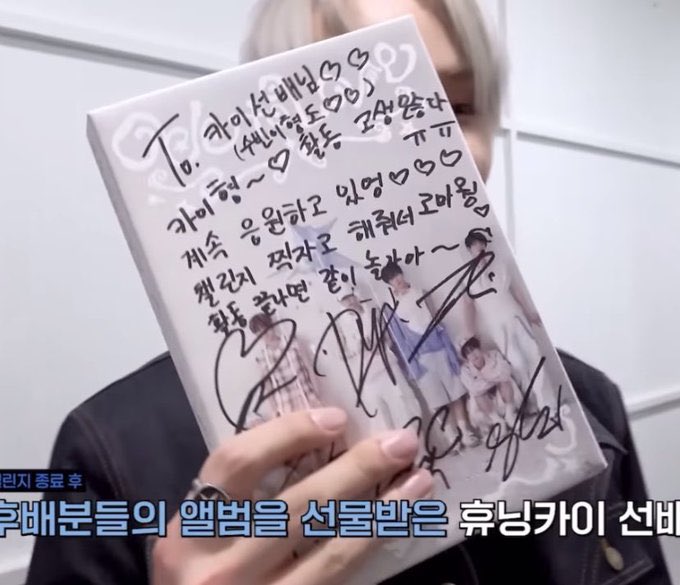 To. 카이선배님♡♡
(수빈이형도♡♡)
카이형~♡ 활동 고생많숭다 ㅠㅠ
계속 응원하고 있엉♡♡♡
챌린지 찍자고 해줘서 고마웡♡
활동 끝나면 같이 놀자아~
챌린지 종료 후
후배분들의 앨범을 선물받은 휴닝카이 선배